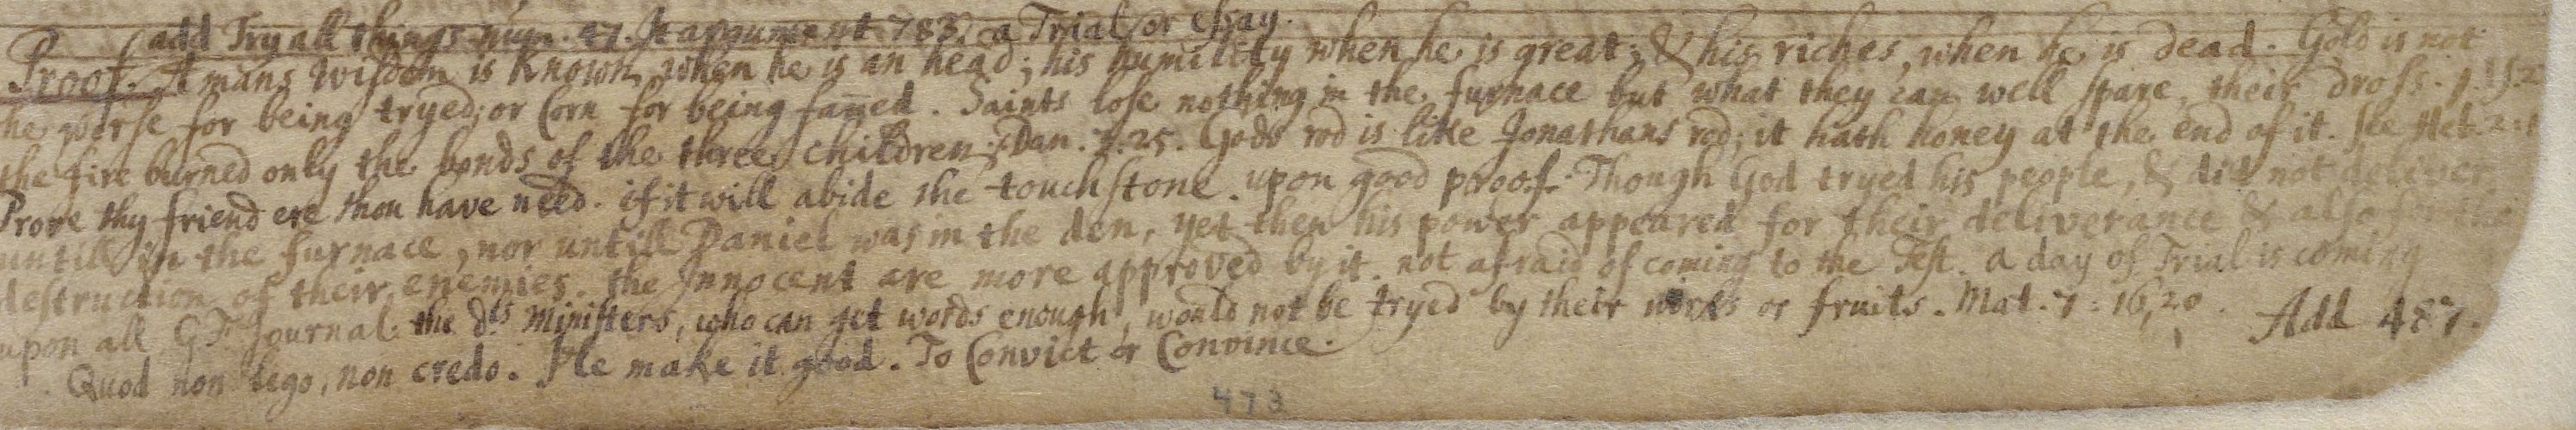 add Try all things num. 47. It argument 783. a Trial or Essay.
Proof. A mans Wisdom is known, when he is an head; his humility when he is great; & his riches, when he is dead. Gold is not
the worse for being tryed; or Corn for being fanned. Saints lose nothing in the furnace but what they can well spare, their dross.
the fire burned only the bonds of the three children. Dan. 3.25. Gods rod is like Jonathans rod; it hath honey at the end of it. see
Prove thy friend ere thou have need. if it will abide the touchstone. upon good proof. Though God tryed his people, & did not deliver
untill in the furnace, nor untill Daniel was in the den, yet then his power appeared for their deliverance & also for the
destruction of their enemies. the Innocent are more approved by it. not afraid of coming to the Test. a day of Trial is coming
upon all G F Journal. the dls Ministers, who can get words enough, would not be tryed by their works or fruits. Mat. 7: 16,20. Add 487.
Quod non lego, non credo. I'le make it good. To Convict or Convince.
473